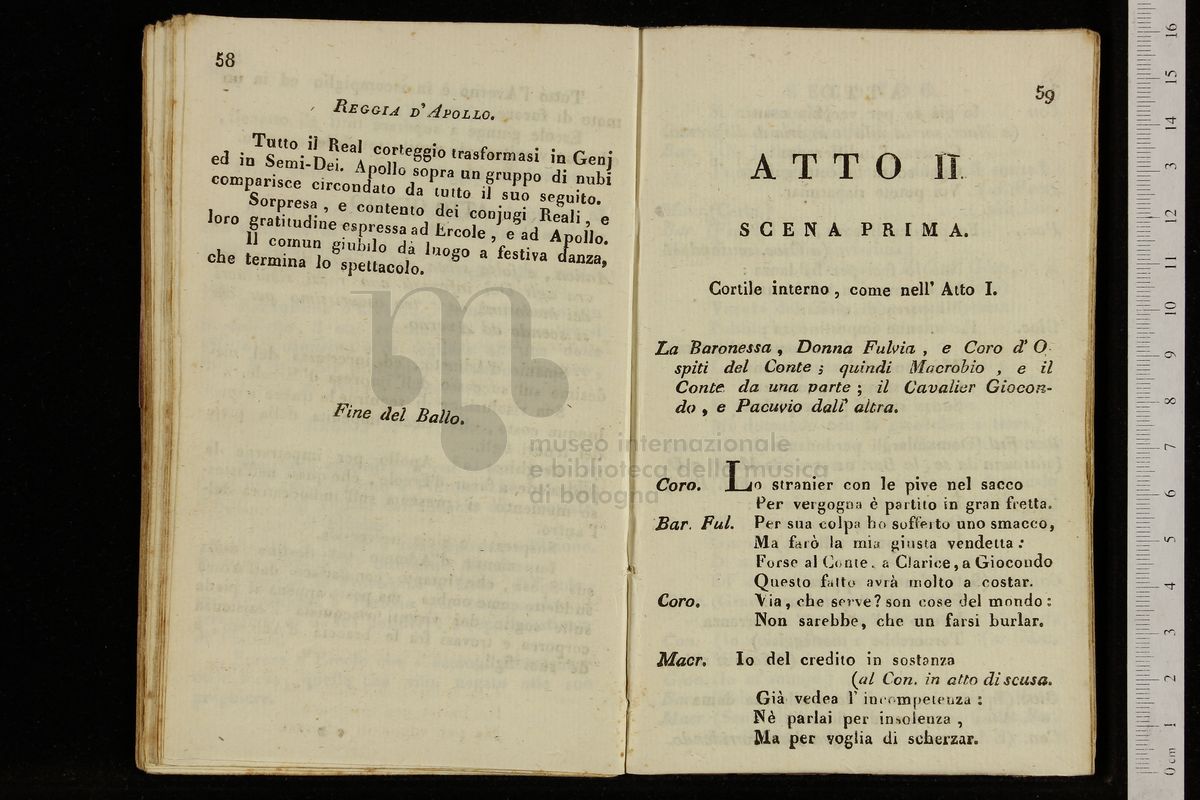 58
REGGIA D' APOLLO.
Tutto il Real corteggio trasformasi in Genj
ed in Semi-Dei. Apollo sopra un gruppo di nubi
comparisce circondato da tutto il suo seguito.
Sorpresa, e contento dei conjugi Reali, e
loro gratitudine espressa ad Ercole, e ad Apollo.
Il comun giubilo dà luogo a festiva danza,
che termina lo spettacolo.
Fine del Ballo.
59
ATTO II.
SCENA PRIMA.
Cortile interno, come nell' Atto I.
La Baronessa, Donna Fulvia, e Coro d' O
spiti del Conte; quindi Macrobio, e il
Conte da una parte; il Cavalier Giocon-
do, e Pacuvio dall' altra.
Coro. Lo stranier con le pive nel sacco
Per vergogna è partito in gran fretta.
Bar. Ful. Per sua colpa ho sofferto uno smacco,
Ma farò la mia giusta vendetta:
Forse al Conte, a Clarice, a Giocondo
Questo fatto avrà molto a costar.
Coro. Via, che serve? son cose del mondo:
Non sarebbe, che un farsi burlar.
Macr. Io del credito in sostanza
(al Con. in atto di scusa.
Già vedea l' incompetenza:
Nè parlai per insolenza,
Ma per voglia di scherzar.
museo internazionale
e biblioteca della musica
di bologna
0 cm 1 2 3 4 5 6 7 8 9 10 11 12 13 14 15 16